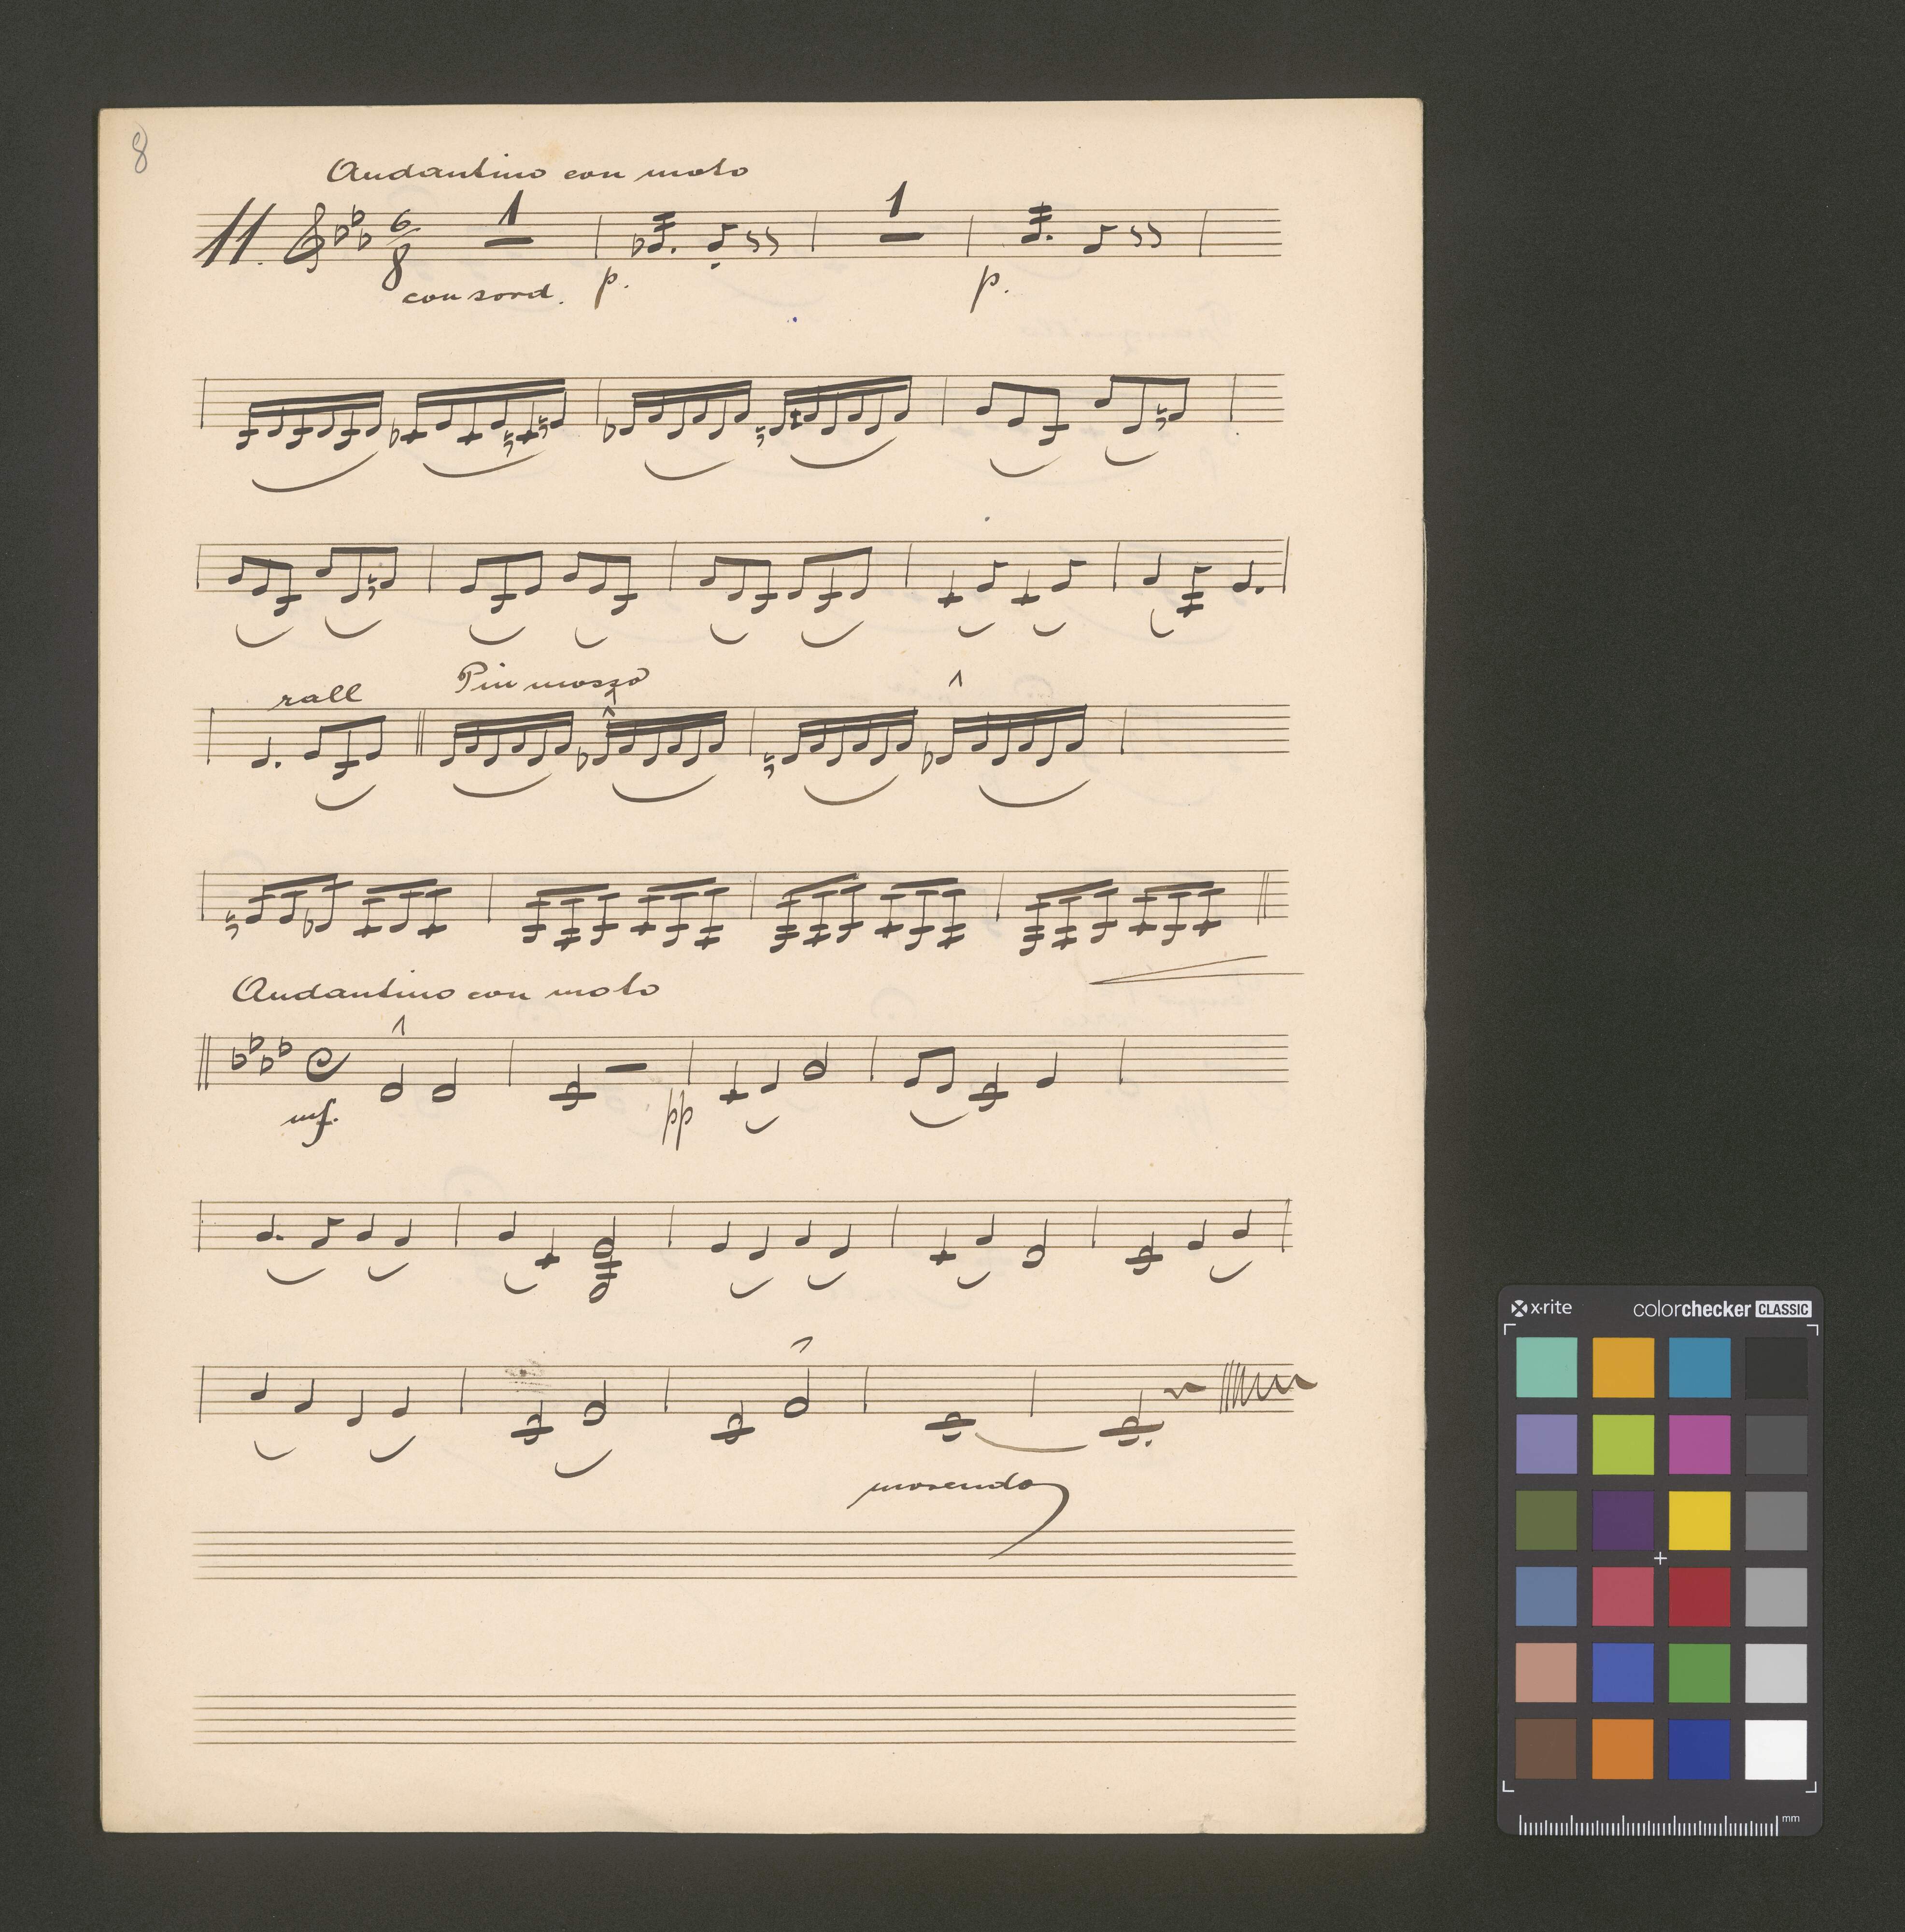 8
Andantino con moto
11. 6/8 1 1
con sord. p. p.
rall Piu mosso
Andantino con moto
mf. pp
morendo
x-rite colorchecker CLASSIC
mm